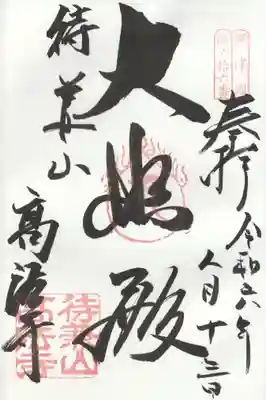 奉拝
令和六年
八月十三日
大悲殿
待兼山
高法寺
待兼山
高法寺